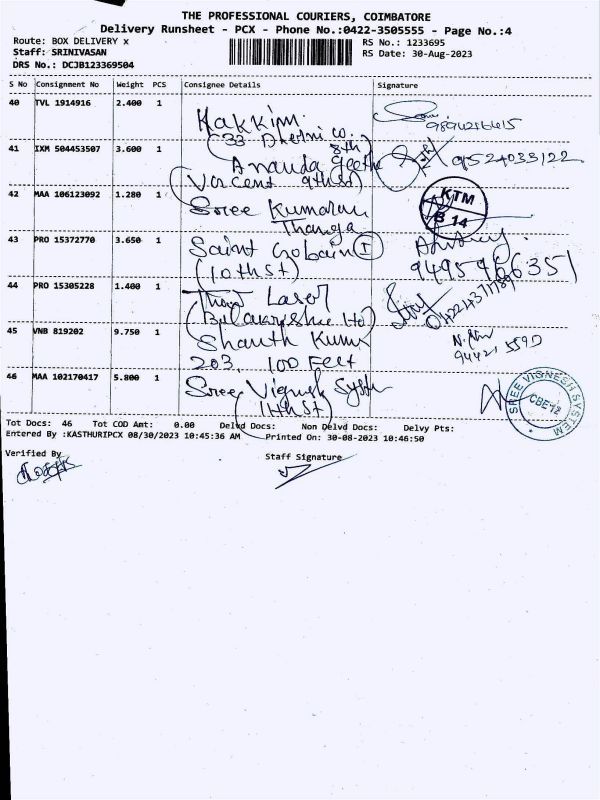 THE PROFESSIONAL COURIERS, COIMBATORE
Delivery Runsheet - PCX - Phone No.:0422-3505555 - Page No.:4
Route: BOX DELIVERY x
RS No.: 1233695
Staff: SRINIVASAN
RS Date: 30-Aug-2023
DRS No.: DCJB123369504
S No Consignment No Weight PCS Consignee Details Signature
40 TVL 1914916 2.400 1
Hakkim
(33 Dhethi co.
8th)
41 IXM 504453507 3.600 1
Ananda Geetha
9524033122
(Vascent 9th St)
42 MAA 106123092 1.280 1
Sree Kumaran
Thanga
KTM
B 14
43 PRO 15372770 3.650 1
Saint Gobain (I)
(10th St)
9495966351
44 PRO 15305228 1.400 1
Laser
ltd)
45 VNB 819202 9.750 1
Shanth Kumar
203, 100 Feet
46 MAA 102170417 5.800 1
Sree Vignesh System
(11th St)
SREE VIGNESH SYSTEM
CBE-12
Tot Docs: 46 Tot COD Amt: 0.00 Delvd Docs: Non Delvd Docs: Delvy Pts:
Entered By :KASTHURIPCX 08/30/2023 10:45:36 AM Printed On: 30-08-2023 10:46:50
Verified By
Staff Signature